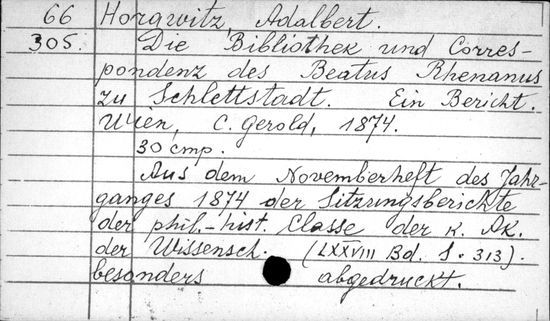 66 Horawitz, Adalbert.
305. Die Bibliothek und Corres-
pondenz des Beatus Rhenanus
zu Schlettstadt. Ein Bericht.
Wien, C. Gerold, 1874.
30 стр.
Aus dem Novemberheft des Jahr-
ganges 1874 der Sitzungsberichte
der phil.-hist. Classe der K. Ak.
der Wissensch. (LXXVIII Bd. S. 313).
besonders abgedruckt.